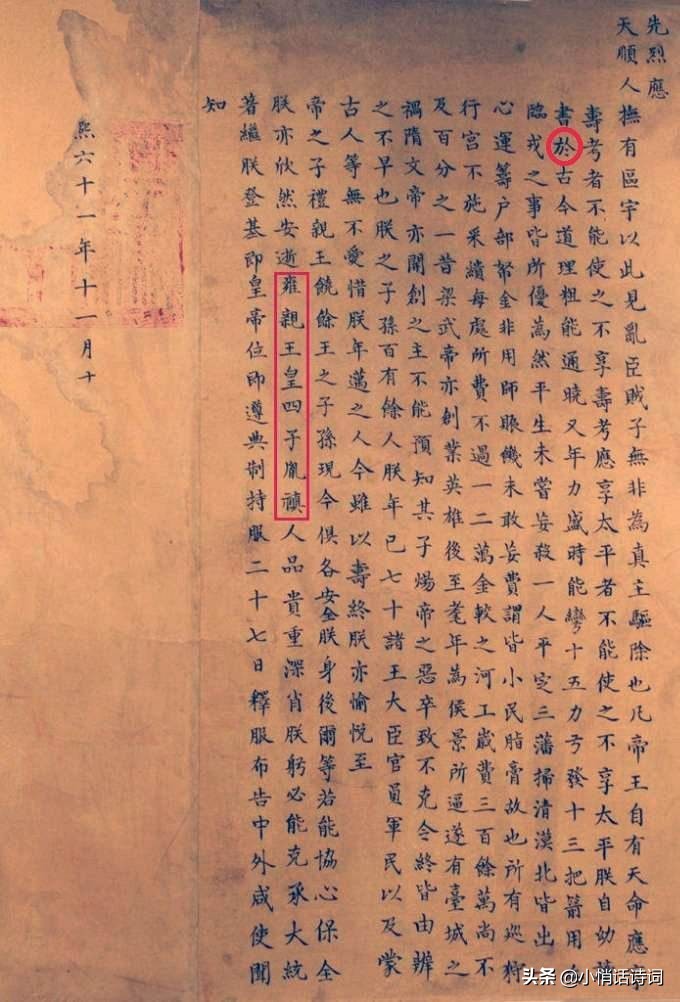 先烈應
天順人撫有區宇以此見亂臣賊子無非為真主驅除也凡帝王自有天命應享
壽考者不能使之不享壽考應享太平者不能使之不享太平朕自幼讀
書於古今道理粗能通曉又年力盛時能彎十五力弓發十三把箭用
臨戎之事皆所優為然平生未嘗妄殺一人平定三藩掃清漠北皆出
心運籌户部帑金非用師賑饑未敢妄費謂皆小民脂膏故也所有巡狩
行宮不施采繢每處所費不過一二萬金較之河工歲費三百餘萬尚不
及百分之一昔梁武帝亦創業英雄後至耄年為侯景所逼遂有臺城之
禍隋文帝亦開創之主不能預知其子煬帝之惡卒致不克令終皆由辨
之不早也朕之子孫百有餘人朕年已七十諸王大臣官員軍民以及蒙
古人等無不愛惜朕年邁之人今雖以壽終朕亦愉悅至
帝之子禮親王饒餘王之子孫現今俱各安全朕身後爾等若能協心保全
朕亦欣然安逝雍親王皇四子胤禛人品貴重深肖朕躬必能克承大統
著繼朕登基即皇帝位即遵典制持服二十七日釋服布告中外咸使聞
知
熙六十一年十一月十
头条 @小悄话诗词